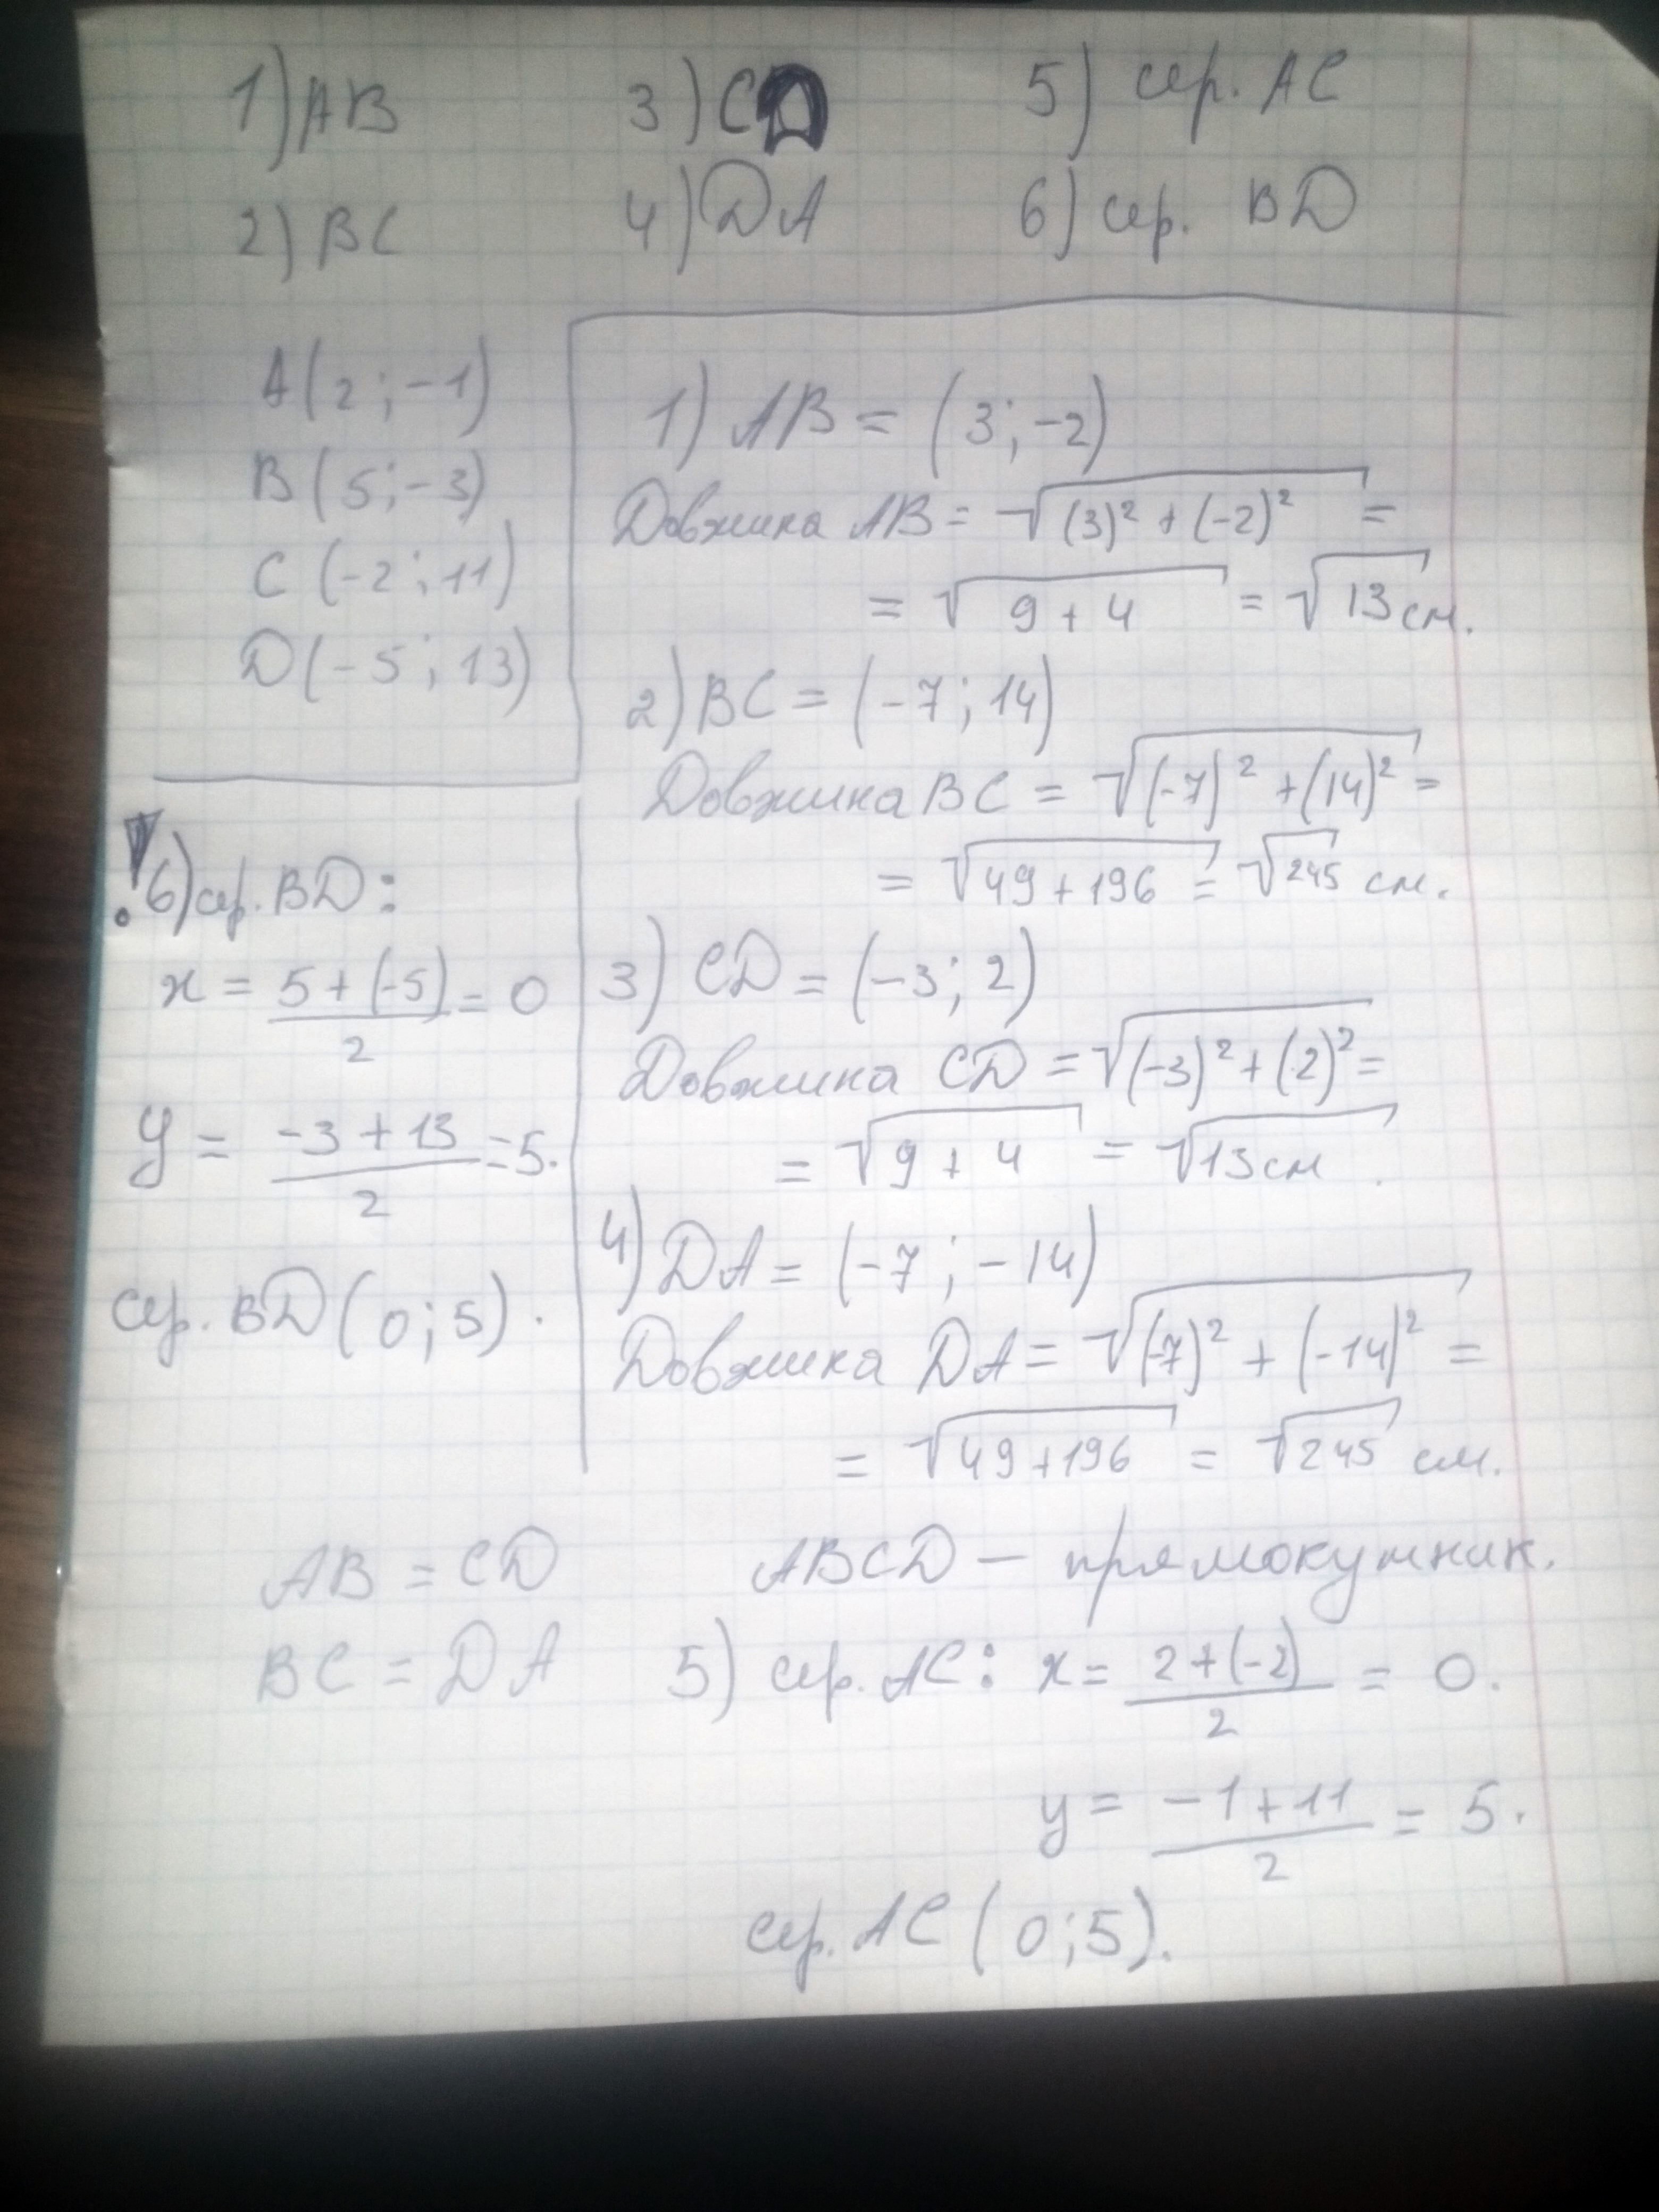 1) AB
2) BC
3) CD
4) DA
5) сер. AC
6) сер. BD
A(2;-1)
B(5;-3)
C(-2;11)
D(-5;13)
1) AB = (3;-2)
Довжина AB = √(3)² + (-2)² =
= √9 + 4 = √13 см.
2) BC = (-7;14)
Довжина BC = √(-7)² + (14)² =
= √49 + 196 = √245 см.
3) CD = (-3;2)
Довжина CD = √(-3)² + (2)² =
= √9 + 4 = √13 см.
4) DA = (-7;-14)
Довжина DA = √(-7)² + (-14)² =
= √49 + 196 = √245 см.
AB = CD
BC = DA
ABCD – прямокутник.
5) сер. AC: x = 2+(-2)/2 = 0.
y = -1+11/2 = 5.
сер. AC (0;5).
! 6) сер. BD:
x = 5+(-5)/2 = 0
y = -3+13/2 = 5.
сер. BD (0;5).